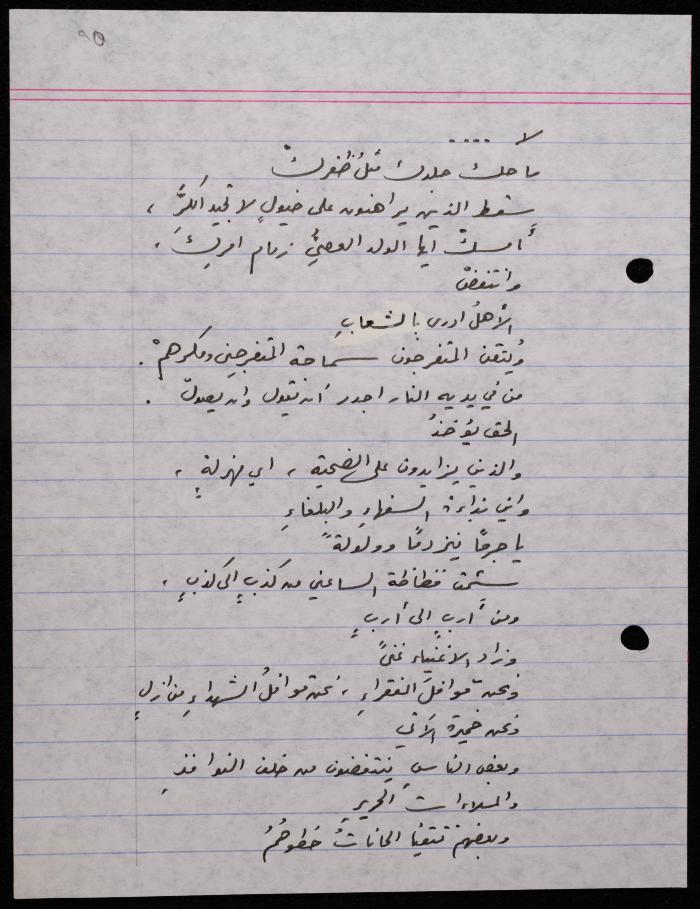 ٩٥
لا ....
ما حك جلدك مثلُ ظفركْ
سقط الذين يراهنون على خيولٍ لا تجيد الكرَّ ،
أمسكْ أيها الولد العصيُّ زمام امركَ ،
وانتفضْ
الأهلُ ادرى بالشعابِ
ويُتقن المتفرجون سماحة المتفرجين ومكرهمْ .
من في يديه النار اجدر أن يقول وان يصولْ .
الحق يؤخذُ
والذين يزايدون على الضحية ، اي مهزلةٍ ،
واي بذاءة السفهاءِ والبلغاءِ
يا جرحًا ينز دمًا وولولةً
سئمت فظاظة الساعين من كذبٍ إلى كذبٍ ،
ومن أربٍ إلى أربٍ
وزاد الاغنياء غنىً
ونحن قوافلَ الفقراءِ ، نحن قوافلُ الشهداءِ من ازلٍ
ونحن خميرة الآتي
وبعض الناسِ ينتفضون من خلف النوافذِ
والملاءات الحريرِ
وبعضهمْ تتقيأ الحاناتُ خطوهُمُ